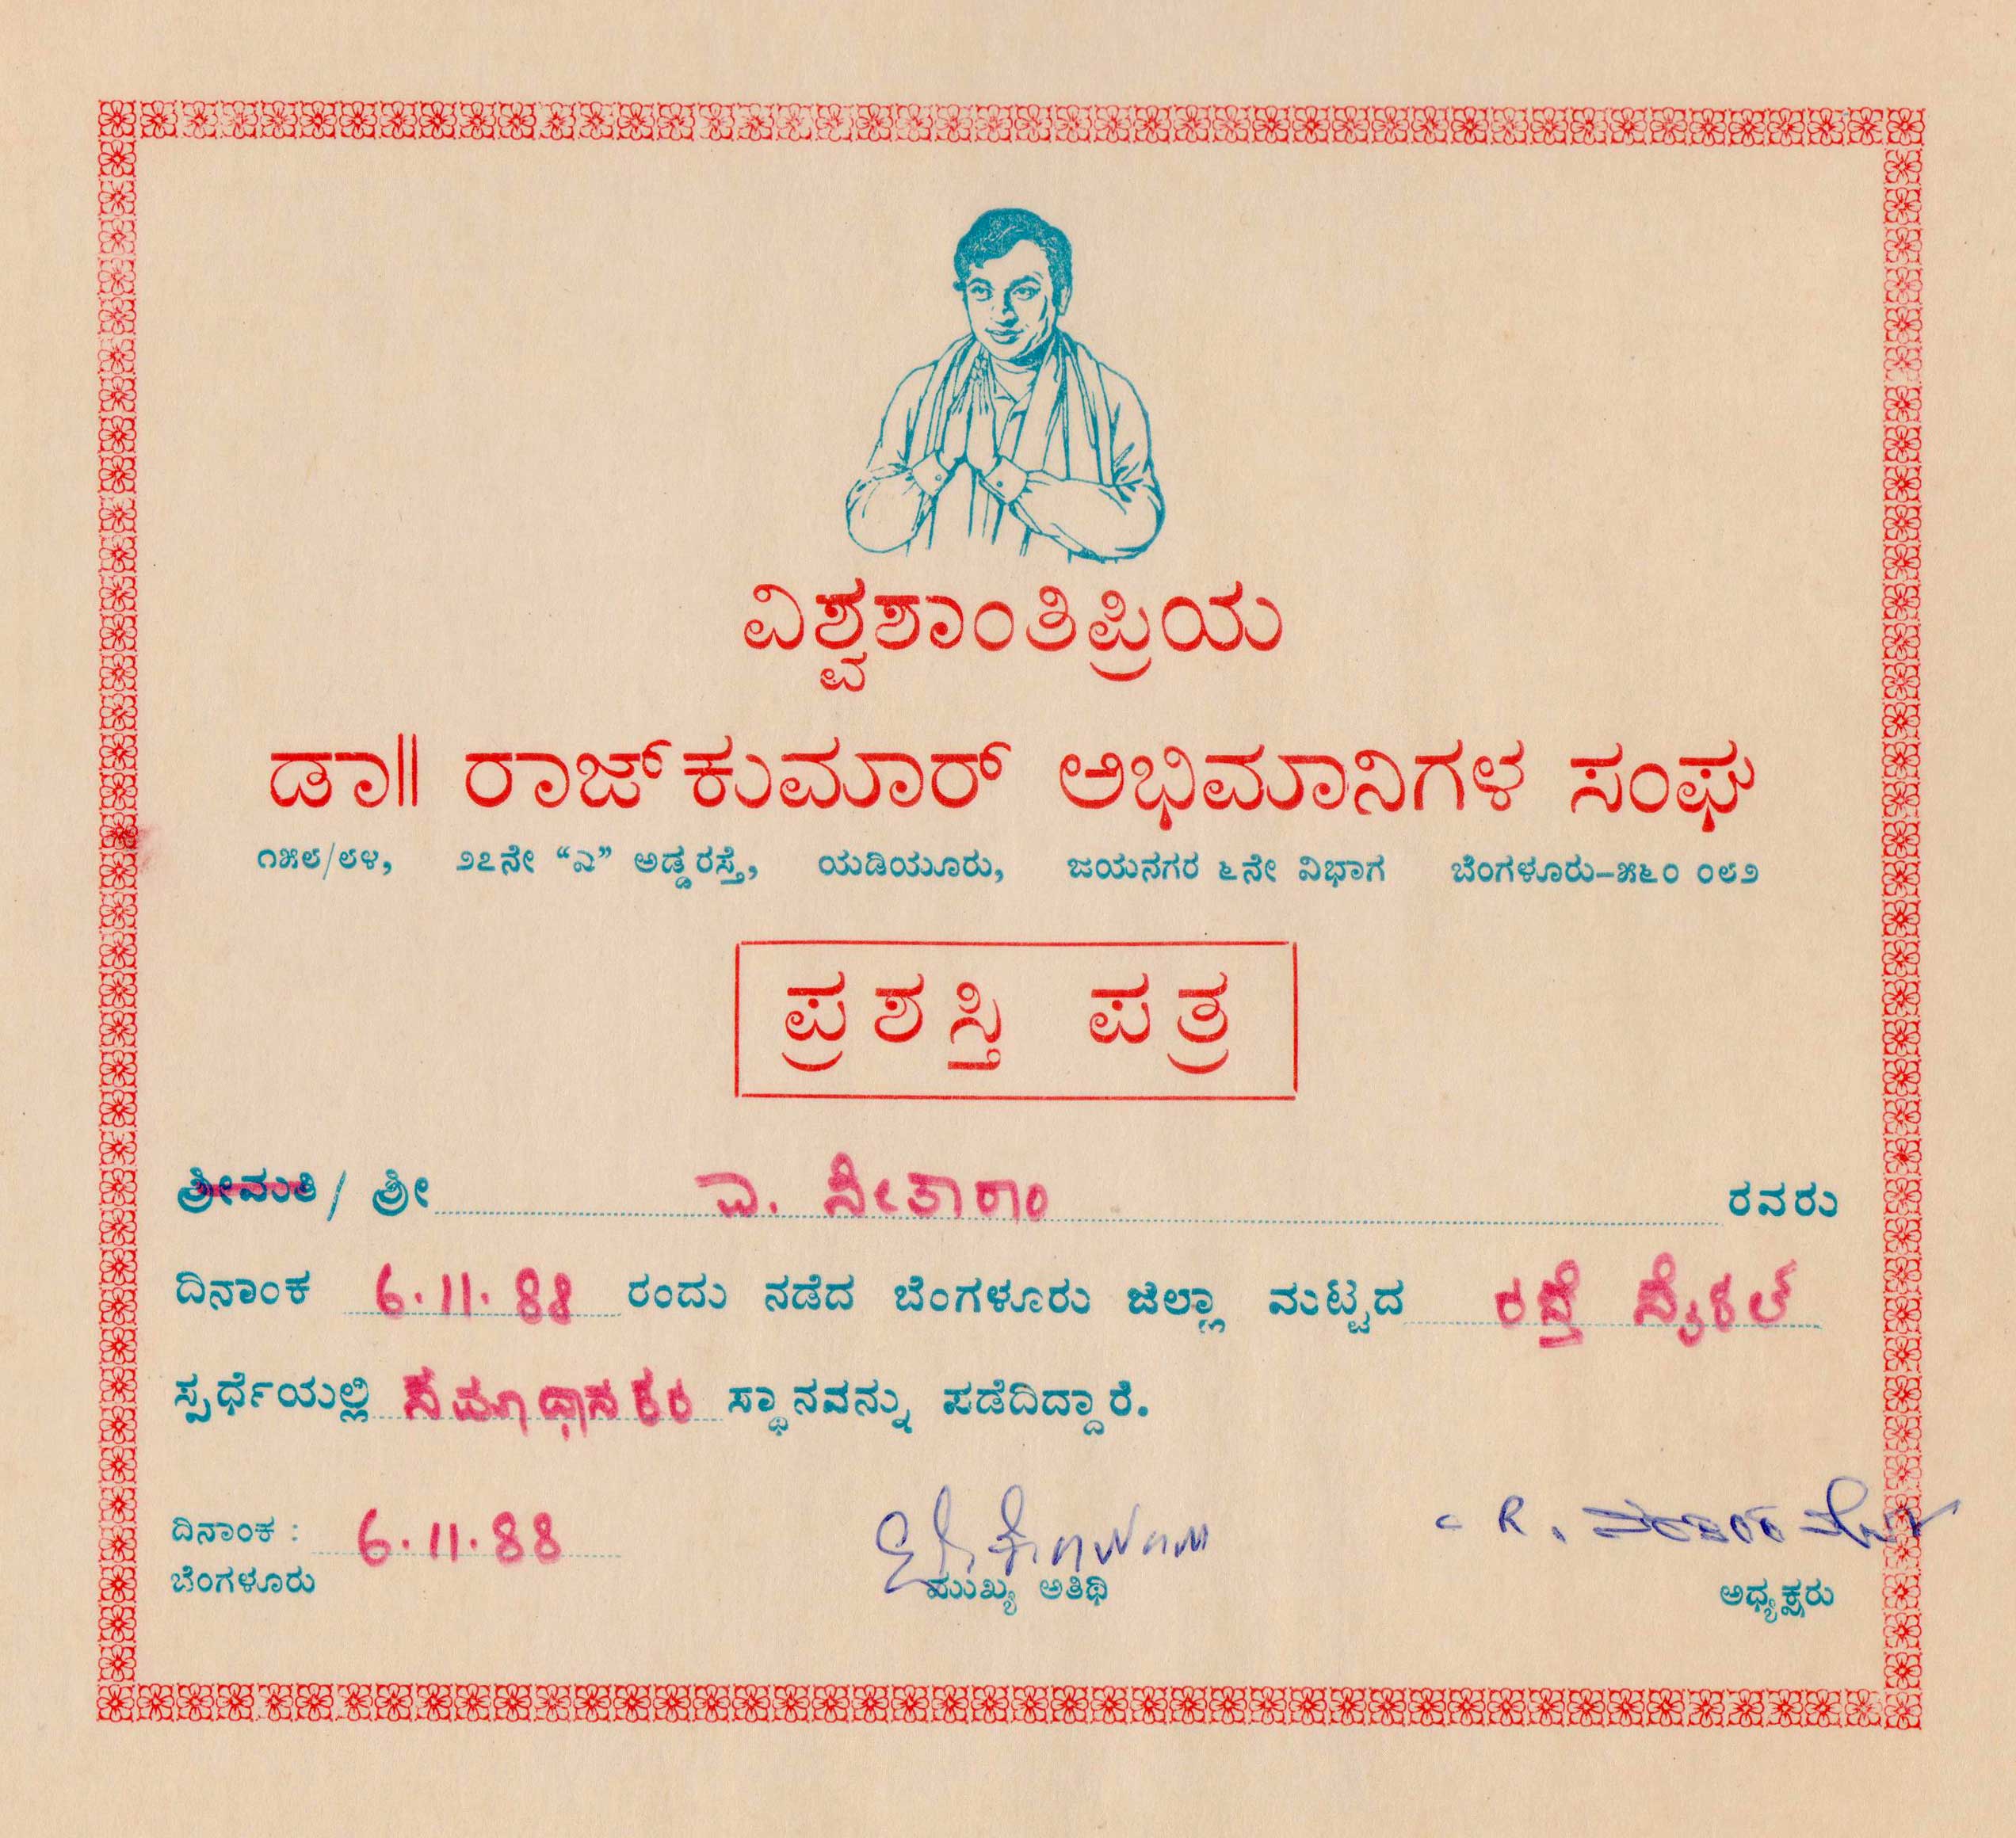 ವಿಶ್ವಶಾಂತಿಪ್ರಿಯ
ಡಾ|| ರಾಜ್‌ಕುಮಾರ್ ಅಭಿಮಾನಿಗಳ ಸಂಘ
೧೫೮/೮೪, ೨೭ನೇ “ಎ” ಅಡ್ಡರಸ್ತೆ, ಯಡಿಯೂರು, ಜಯನಗರ ೬ನೇ ವಿಭಾಗ ಬೆಂಗಳೂರು–೫೬೦ ೦೮೨
ಪ್ರಶಸ್ತಿ ಪತ್ರ
ಶ್ರೀಮತಿ / ಶ್ರೀ ಎ. ಸೀತಾರಾಂ ರವರು
ದಿನಾಂಕ 6.11.88 ರಂದು ನಡೆದ ಬೆಂಗಳೂರು ಜಿಲ್ಲಾ ಮಟ್ಟದ ರಸ್ತೆ ಸೈಕಲ್
ಸ್ಪರ್ಧೆಯಲ್ಲಿ ಸಮಾಧಾನಕರ ಸ್ಥಾನವನ್ನು ಪಡೆದಿದ್ದಾರೆ.
ದಿನಾಂಕ : 6.11.88
ಬೆಂಗಳೂರು ಮುಖ್ಯ ಅತಿಥಿ ಅಧ್ಯಕ್ಷರು